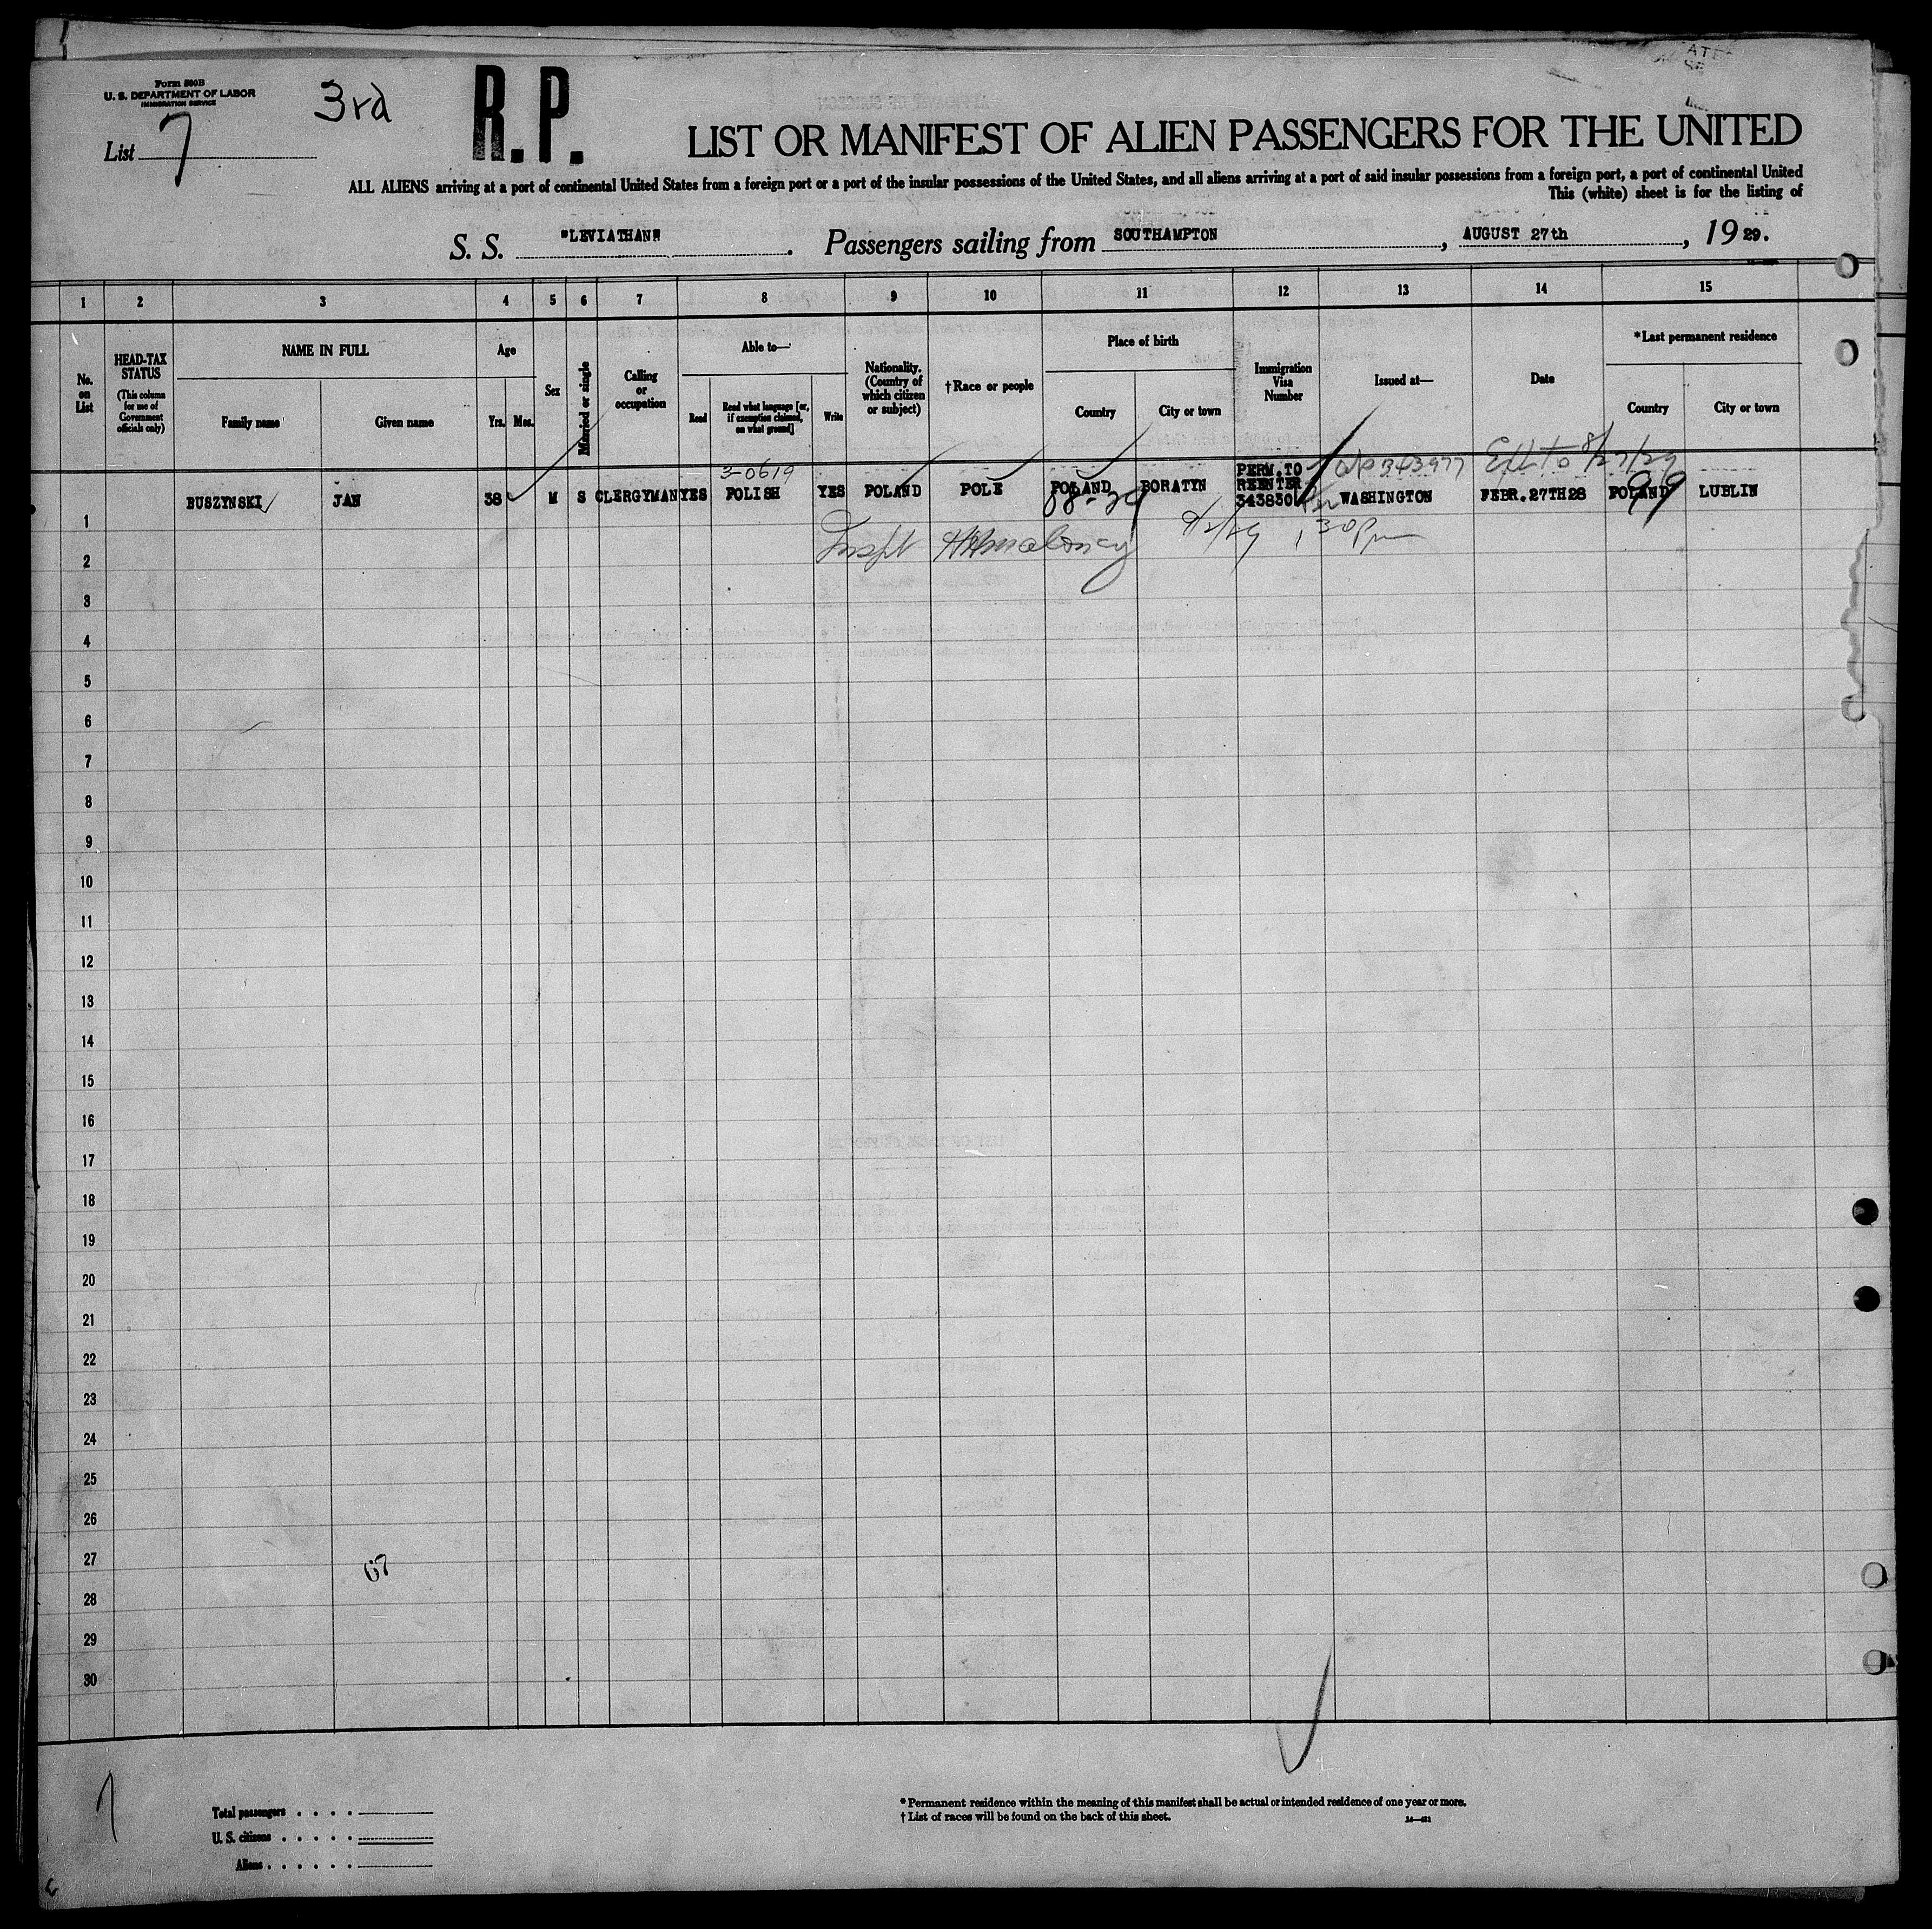 Form 500B
U. S. DEPARTMENT OF LABOR
IMMIGRATION SERVICE
List 7
3rd
R.P.
LIST OR MANIFEST OF ALIEN PASSENGERS FOR THE UNITED
ALL ALIENS arriving at a port of continental United States from a foreign port or a port of the insular possessions of the United States, and all aliens arriving at a port of said insular possessions from a foreign port, a port of continental United
This (white) sheet is for the listing of
S. S. "LEVIATHAN". Passengers sailing from SOUTHAMPTON, AUGUST 27th, 1929.
1 2 3 4 5 6 7 8 9 10 11 12 13 14 15
No. on List
HEAD-TAX STATUS
(This column for use of Government officials only)
NAME IN FULL
Family name
Given name
Age
Yrs. Mos.
Sex
Married or single
Calling or occupation
Able to—
Read
Read what language [or, if exemption claimed, on what ground]
Write
Nationality. (Country of which citizen or subject)
†Race or people
Place of birth
Country
City or town
Immigration Visa Number
Issued at—
Date
*Last permanent residence
Country
City or town
3-0619
W/P 343977
8/27/29
BUSZYNSKI JAN 38 M S CLERGYMAN YES POLISH YES POLAND POLE POLAND BORATYN PERM.TO REENTER 343830 WASHINGTON FEBR.27TH28 POLAND LUBLIN
99
Inspt 9/2/29 1 30 pm
1
2
3
4
5
6
7
8
9
10
11
12
13
14
15
16
17
18
19
20
21
22
23
24
25
26
27
28
29
30
Total passengers . . . .
U. S. citizens . . . . .
Aliens . . . . . .
*Permanent residence within the meaning of this manifest shall be actual or intended residence of one year or more.
†List of races will be found on the back of this sheet.